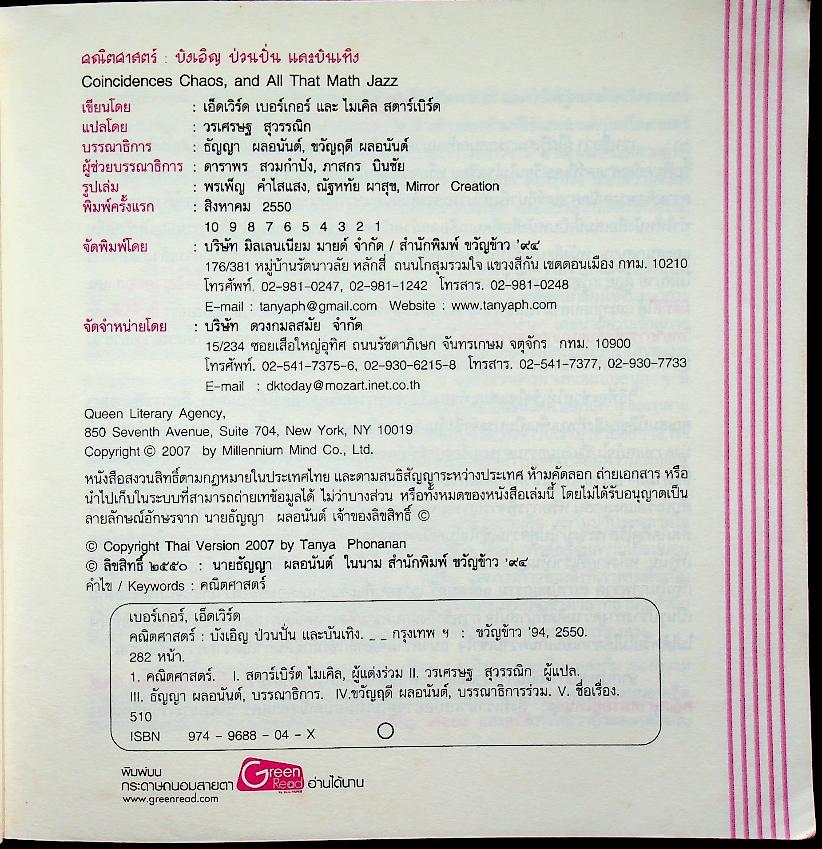 คณิตศาสตร์ : บังเอิญ ป่วนปั่น และบันเทิง
Coincidences Chaos, and All That Math Jazz
เขียนโดย : เอ็ดเวิร์ด เบอร์เกอร์ และ ไมเคิล สตาร์เบิร์ด
แปลโดย : วรเศรษฐ สุวรรณิก
บรรณาธิการ : ธัญญา ผลอนันต์, ขวัญฤดี ผลอนันต์
ผู้ช่วยบรรณาธิการ : ดาราพร สวมกำปัง, ภาสกร บินชัย
รูปเล่ม : พรเพ็ญ คำไสแสง, ณัฐหทัย ผาสุข, Mirror Creation
พิมพ์ครั้งแรก : สิงหาคม 2550
10 9 8 7 6 5 4 3 2 1
จัดพิมพ์โดย : บริษัท มิลเลนเนียม มายด์ จำกัด / สำนักพิมพ์ ขวัญข้าว '๙๔
176/381 หมู่บ้านรัตนาวลัย หลักสี่ ถนนโกสุมรวมใจ แขวงสีกัน เขตดอนเมือง กทม. 10210
โทรศัพท์. 02-981-0247, 02-981-1242 โทรสาร. 02-981-0248
E-mail : tanyaph@gmail.com Website : www.tanyaph.com
จัดจำหน่ายโดย : บริษัท ดวงกมลสมัย จำกัด
15/234 ซอยเสือใหญ่อุทิศ ถนนรัชดาภิเษก จันทรเกษม จตุจักร กทม. 10900
โทรศัพท์. 02-541-7375-6, 02-930-6215-8 โทรสาร. 02-541-7377, 02-930-7733
E-mail : dktoday@mozart.inet.co.th
Queen Literary Agency,
850 Seventh Avenue, Suite 704, New York, NY 10019
Copyright © 2007 by Millennium Mind Co., Ltd.
หนังสือสงวนสิทธิ์ตามกฎหมายในประเทศไทย และตามสนธิสัญญาระหว่างประเทศ ห้ามคัดลอก ถ่ายเอกสาร หรือ
นำไปเก็บในระบบที่สามารถถ่ายเทข้อมูลได้ ไม่ว่าบางส่วน หรือทั้งหมดของหนังสือเล่มนี้ โดยไม่ได้รับอนุญาตเป็น
ลายลักษณ์อักษรจาก นายธัญญา ผลอนันต์ เจ้าของลิขสิทธิ์ ©
© Copyright Thai Version 2007 by Tanya Phonanan
© ลิขสิทธิ์ ๒๕๕๐ : นายธัญญา ผลอนันต์ ในนาม สำนักพิมพ์ ขวัญข้าว '๙๔
คำไข / Keywords : คณิตศาสตร์
เบอร์เกอร์, เอ็ดเวิร์ด
คณิตศาสตร์ : บังเอิญ ป่วนปั่น และบันเทิง. _ _ กรุงเทพ ฯ : ขวัญข้าว '94, 2550.
282 หน้า.
1. คณิตศาสตร์. I. สตาร์เบิร์ต ไมเคิล, ผู้แต่งร่วม II. วรเศรษฐ สุวรรณิก ผู้แปล.
III. ธัญญา ผลอนันต์, บรรณาธิการ. IV.ขวัญฤดี ผลอนันต์, บรรณาธิการร่วม. V. ชื่อเรื่อง.
510
ISBN 974 - 9688 - 04 - X
พิมพ์บน
กระดาษถนอมสายตา Green Read อ่านได้นาน
www.greenread.com